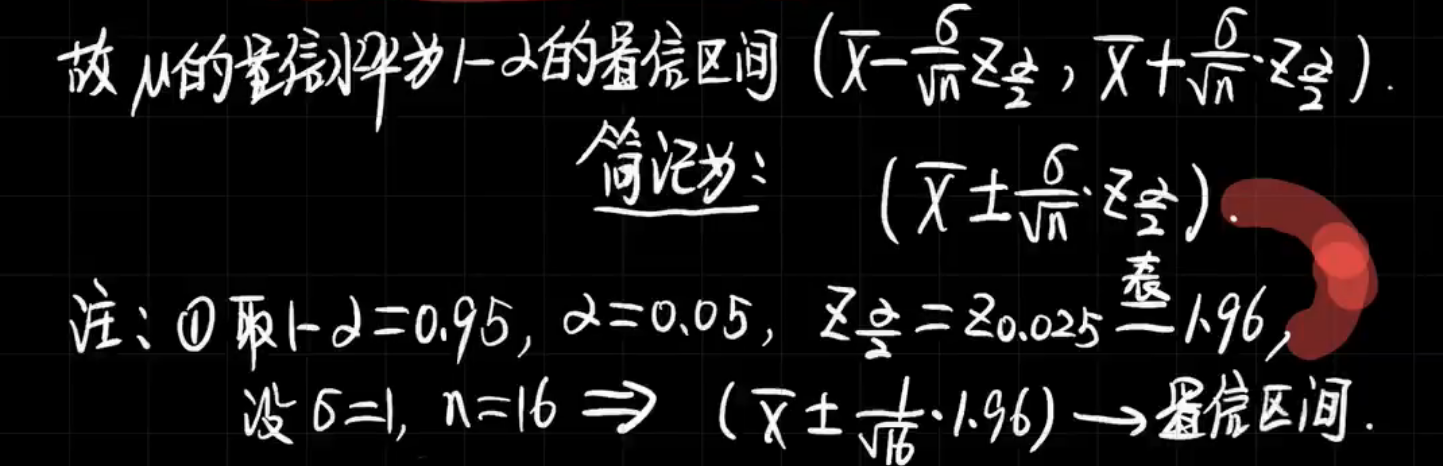 故μ的置信水平为1-α的置信区间 (X̄-σ/√n z_{α/2}, X̄+σ/√n·z_{α/2}).
简记为: (X̄±σ/√n·z_{α/2}).
注: ① 取1-α=0.95, α=0.05, z_{α/2}=z_{0.025} 查表= 1.96,
设σ=1, n=16 ⇒ (X̄±1/√16·1.96)→置信区间.